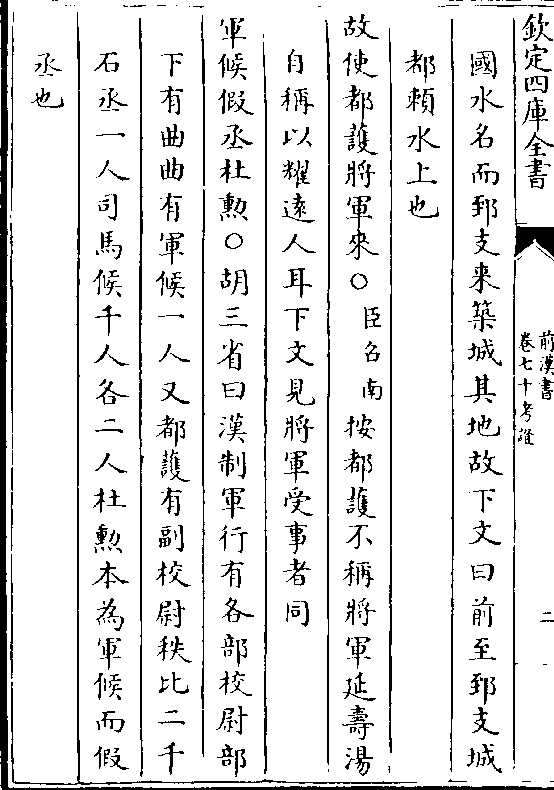 欽定四庫全書
前漢書
卷七十考證
二
國水名而郅支來築城其地故下文曰前至郅支城
都賴水上也
故使都護將軍來○臣召南按都護不稱將軍延壽湯
自稱以耀遠人耳下文見將軍受事者同
軍候假丞杜勲○胡三省曰漢制軍行有各部校尉部
下有曲曲有軍候一人又都護有副校尉秩比二千
石丞一人司馬候千人各二人杜勲本為軍候而假
丞也